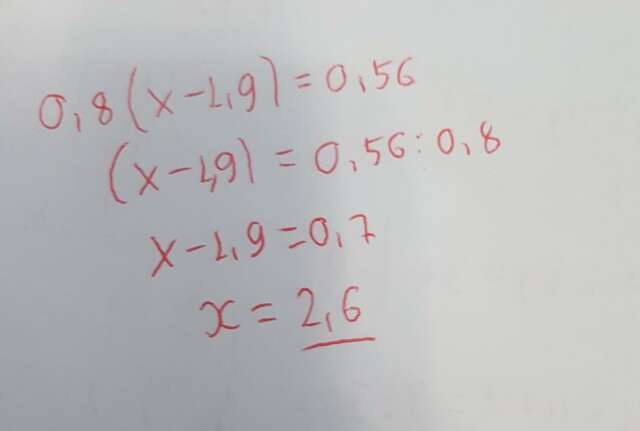 0,8(x-1,9)=0,56
(x-1,9)=0,56:0,8
x-1,9=0,7
x=2,6